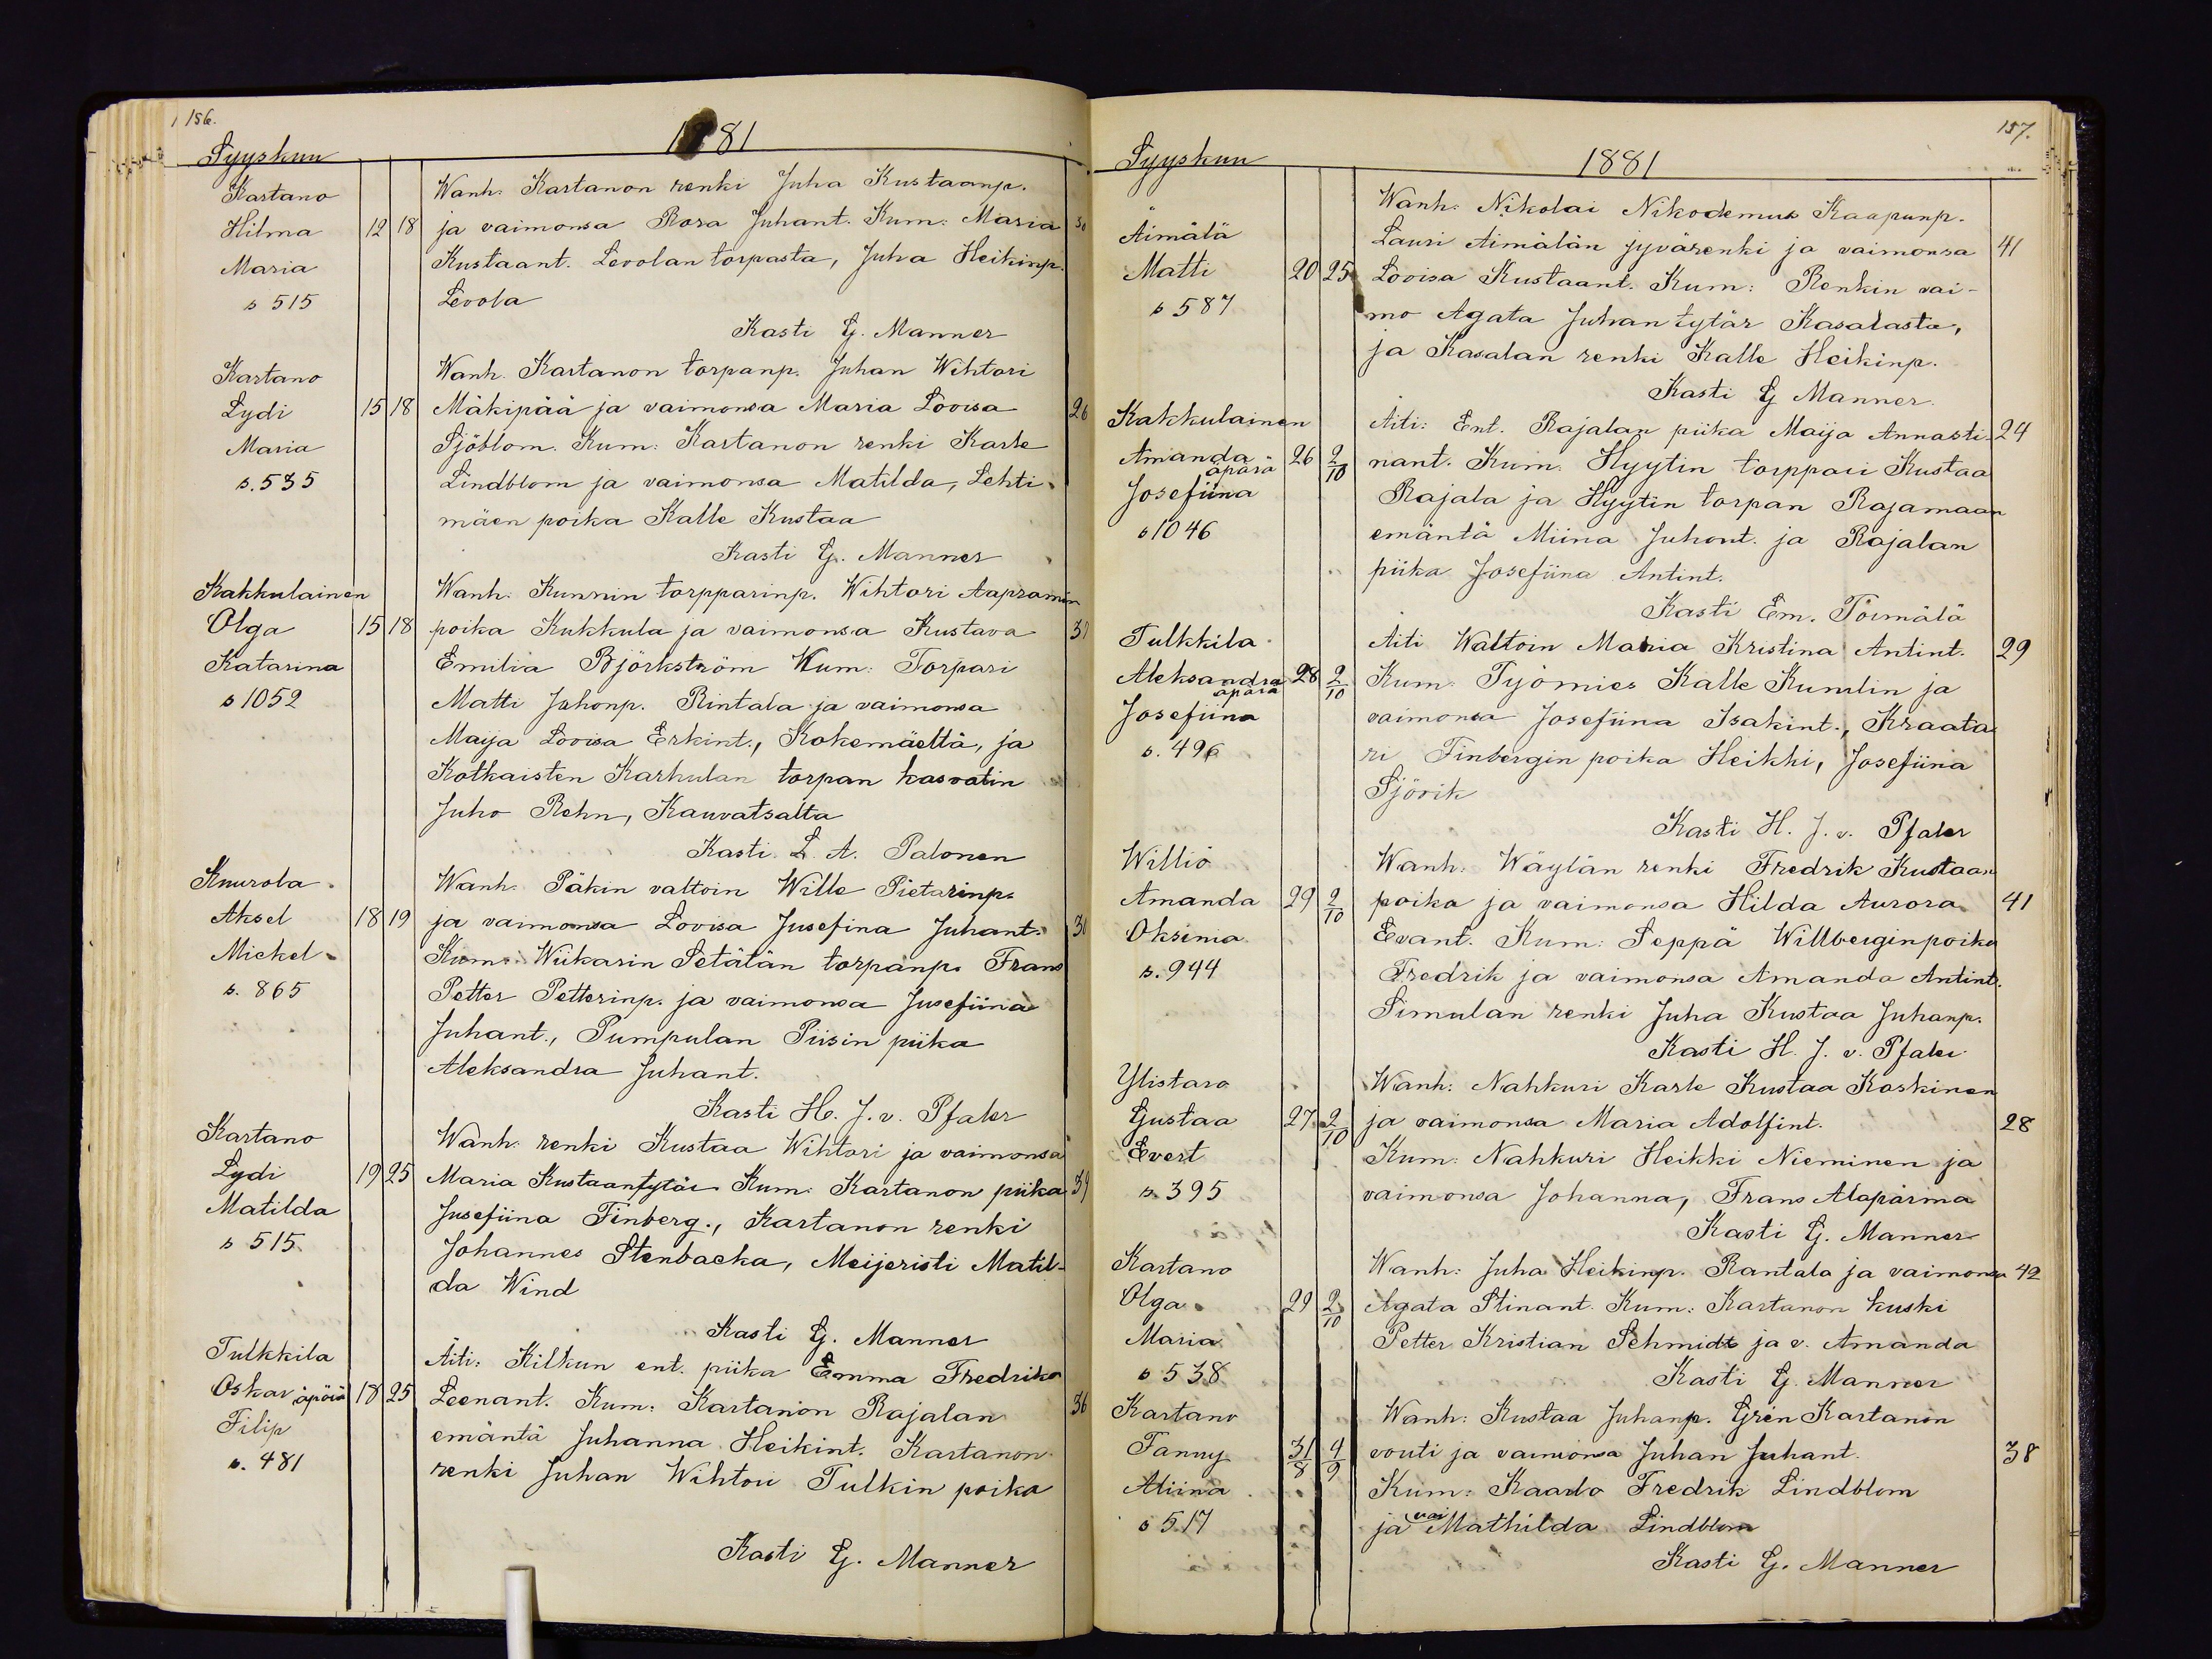 156.
1881
Syyskun
Kartano
Hilma 12 18
Maria
s 515
Wanh: Kartanon renki Juha Kustaanp.
ja vaimonsa Rosa Juhant. Kum: Maria 30
Kustaant. Levolan torpasta, Juha Heikinp.
Levola
Kasti G. Manner
Kartano
Lydi 15 18
Maria
s. 535
Wanh. Kartanon torpanp. Juhan Wihtori
Mäkipää ja vaimonsa Maria Lovisa 26
Sjöblom. Kum: Kartanon renki Karle
Lindblom ja vaimonsa Matilda, Lehti-
mäen poika Kalle Kustaa
Kasti G. Manner
Kakkulainen
Olga 15 18
Katarina
s 1052
Wanh. Kunnin torpparinp. Wihtori Aapramin
poika Kukkula ja vaimonsa Kustava 31
Emilia Björkström Kum: Torpari
Matti Juhonp. Rintala ja vaimonsa
Maija Lovisa Erkint., Kokemäeltä, ja
Kotkaisten Karhulan torpan kasvatin
Juho Rehn, Kauvatsalta
Kasti L. A. Palonen
Knurola
Aksel 18 19
Mickel
s. 865
Wanh. Päkin valtoin Wille Pietarinp.
ja vaimonsa Lovisa Jusefina Juhant.
Kum: Wiikarin Setälän torpanp. Frans
Petter Petterinp. ja vaimonsa Jusefiina
Juhant., Pumpulan Piisin piika
Aleksandra Juhant.
Kasti H. J. v. Pfaler
Kartano
Lydi 19 25
Matilda
s 515
Wanh: renki Kustaa Wihtori ja vaimonsa
Maria Kustaantytär Kum: Kartanon piika 39
Jusefiina Finberg., Kartanon renki
Johannes Stenbacka, Meijeristi Matil-
da Wind
Kasti G. Manner
Tulkkila
Oskar äpärä 18 25
Filip
s. 481
Äiti: Kilkun ent. piika Emma Fredrika
Leenant. Kum: Kartanon Rajalan 36
emäntä Juhanna Heikint. Kartanon
renki Juhan Wihtori Tulkin poika
Kasti G. Manner
157.
Syyskun
1881
Äimälä
Matti 20 25
s 587
Wanh: Nikolai Nikodemus Kaapunp.
Lauri Äimälän jyvärenki ja vaimonsa 41
Lovisa Kustaant. Kum: Renkin vai-
mo Agata Juhan tytär Kasalasta,
ja Kasalan renki Kalle Heikinp.
Kasti G Manner
Kakkulainen
Amanda 26 2/10
äpärä
Josefiina
s 1046
Äiti: Ent. Rajalan piika Maija Annasti- 24
nant. Kum. Hyytin torppari Kustaa
Rajala ja Hyytin torpan Rajamaan
emäntä Miina Juhont. ja Rajalan
piika Josefiina Antint.
Kasti Em. Törmälä
Tulkkila
Aleksandra 28 2/10
äpärä
Josefiina
s. 496
Äiti Waltoin Maria Kristina Antint. 29
Kum: Työmies Kalle Kumlin ja
vaimonsa Josefiina Isakint., Kraata
ri Finbergin poika Heikki, Josefiina
Sjövik
Kasti H. J. v. Pfaler
Williö
Amanda 29 2/10
Oksenia
s. 944
Wanh: Wäylän renki Fredrik Kustaan
poika ja vaimonsa Hilda Aurora 41
Evant. Kum: Seppä Willberginpoika
Fredrik ja vaimonsa Amanda Antint.
Simulan renki Juha Kustaa Juhanp.
Kasti H. J. v. Pfaler
Ylistaro
Gustaa 27 2/10
Evert
s. 395
Wanh: Nahkuri Karle Kustaa Koskinen
ja vaimonsa Maria Adolfint. 28
Kum: Nahkuri Heikki Nieminen ja
vaimonsa Johanna, Frans Alapärma
Kasti G. Manner
Kartano
Olga 29 2/10
Maria
s 538
Wanh: Juha Heikinp. Rantala ja vaimonsa 42
Agata Stinant. Kum: Kartanon kuski
Petter Kristian Schmidt ja v. Amanda
Kasti G. Manner
Kartano
Fanny 31/8 4/9
Aliina
s 517
Wanh: Kustaa Juhanp. Grén Kartanon
vouti ja vaimonsa Juhan Juhant. 38
Kum: Kaarlo Fredrik Lindblom
ja vai Mathilda Lindblom
Kasti G. Manner